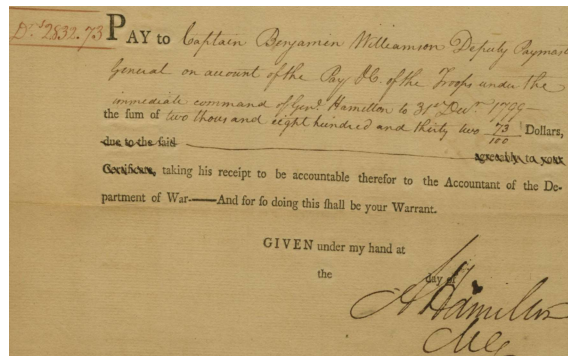 Drs 2832.73 PAY to Captain Benjamin Williamson Deputy Paymas
General on account of the Pay &C. of the Troops under the
immediate command of Genl. Hamilton to 31st Decr. 1799—
the ſum of two thousand eight hundred and thirty two 73/100 Dollars,
due to the ſaid agreeably to your
Certificate, taking his receipt to be accountable therefor to the Accountant of the De-
partment of War.——And for ſo doing this ſhall be your Warrant.
GIVEN under my hand at
the day of
A Hamilton